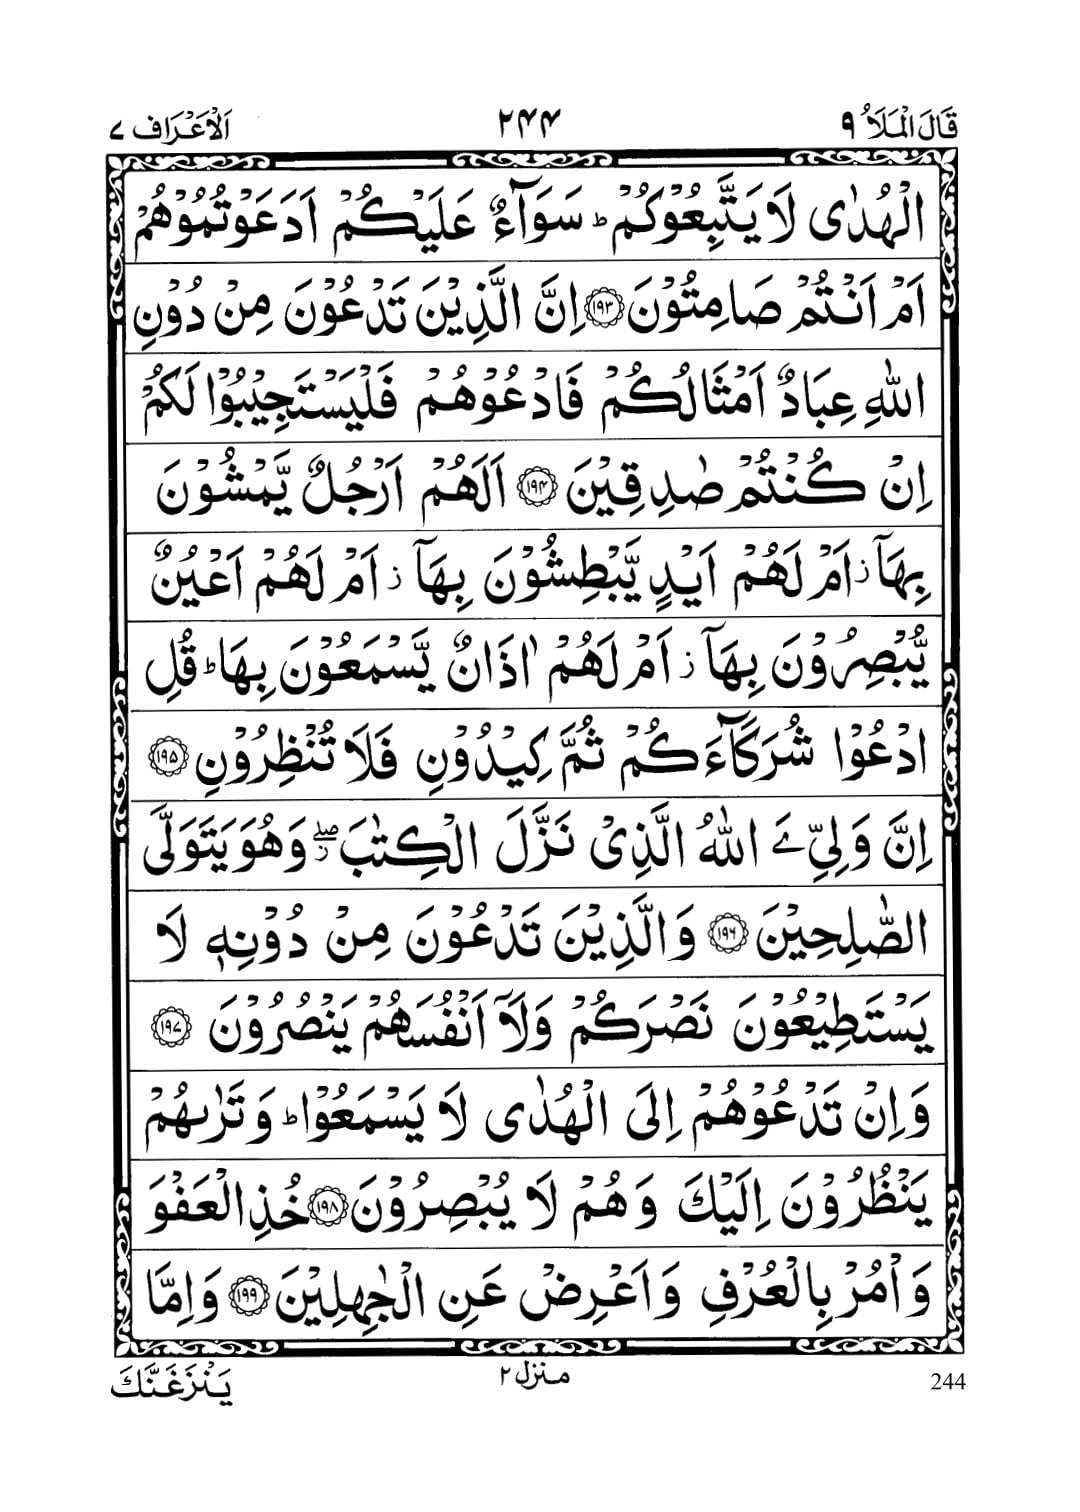 قَالَ الْمَلَاُ ٩ ٢۴۴ اَلْاَعْرَاف ٧
الْهُدٰى لَا يَتَّبِعُوْكُمْ ؕ سَوَآءٌ عَلَيْكُمْ اَدَعَوْتُمُوْهُمْ
اَمْ اَنْتُمْ صَامِتُوْنَ ﴿١٩٣﴾ اِنَّ الَّذِيْنَ تَدْعُوْنَ مِنْ دُوْنِ
اللّٰهِ عِبَادٌ اَمْثَالُكُمْ فَادْعُوْهُمْ فَلْيَسْتَجِيْبُوْا لَكُمْ
اِنْ كُنْتُمْ صٰدِقِيْنَ ﴿١٩۴﴾ اَلَهُمْ اَرْجُلٌ يَّمْشُوْنَ
بِهَآ ز اَمْ لَهُمْ اَيْدٍ يَّبْطِشُوْنَ بِهَآ ز اَمْ لَهُمْ اَعْيُنٌ
يُّبْصِرُوْنَ بِهَآ ز اَمْ لَهُمْ اٰذَانٌ يَّسْمَعُوْنَ بِهَا ؕ قُلِ
ادْعُوْا شُرَكَآءَكُمْ ثُمَّ كِيْدُوْنِ فَلَا تُنْظِرُوْنِ ﴿١٩۵﴾
اِنَّ وَلِيِّ ےَ اللّٰهُ الَّذِىْ نَزَّلَ الْكِتٰبَ ۖز وَهُوَ يَتَوَلَّى
الصّٰلِحِيْنَ ﴿١٩۶﴾ وَالَّذِيْنَ تَدْعُوْنَ مِنْ دُوْنِهٖ لَا
يَسْتَطِيْعُوْنَ نَصْرَكُمْ وَلَآ اَنْفُسَهُمْ يَنْصُرُوْنَ ﴿١٩٧﴾
وَاِنْ تَدْعُوْهُمْ اِلَى الْهُدٰى لَا يَسْمَعُوْا ؕ وَتَرٰىهُمْ
يَنْظُرُوْنَ اِلَيْكَ وَهُمْ لَا يُبْصِرُوْنَ ﴿١٩٨﴾ خُذِ الْعَفْوَ
وَاْمُرْ بِالْعُرْفِ وَاَعْرِضْ عَنِ الْجٰهِلِيْنَ ﴿١٩٩﴾ وَاِمَّا
244 منزل ٢ يَنْزَغَنَّكَ